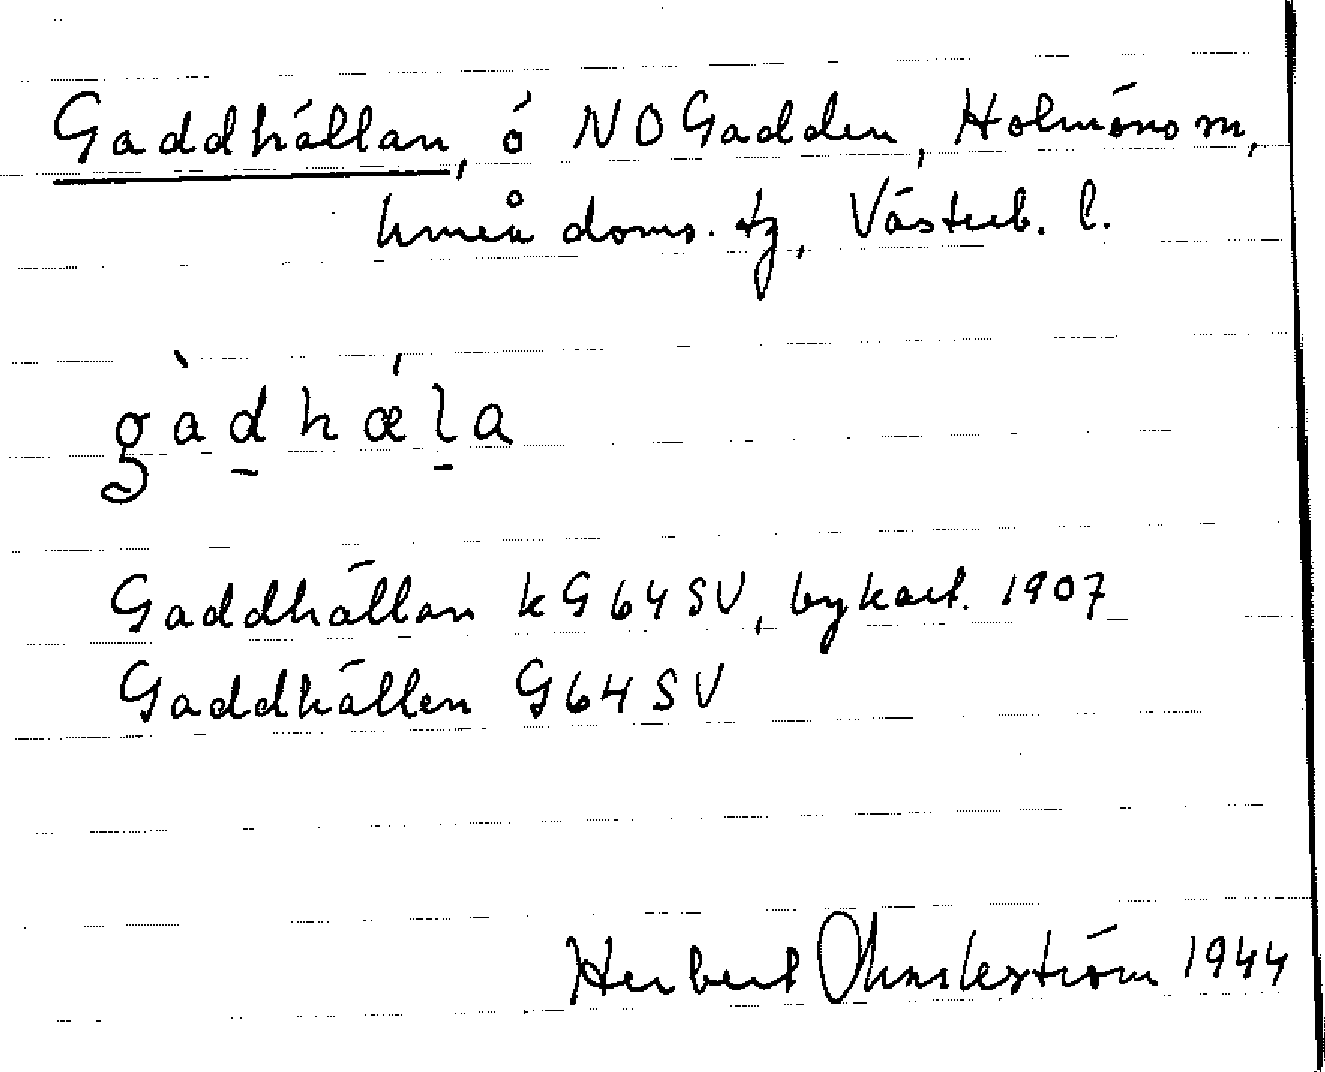 Gaddhällan, ö NO Gadden, Holmöns sn,
Umeå doms. tg, Västerb. l.
g̀adhǽla
Gaddhällan kG 64 SV, bykart. 1907
Gaddhällen G 64 SV
Herbert 1944